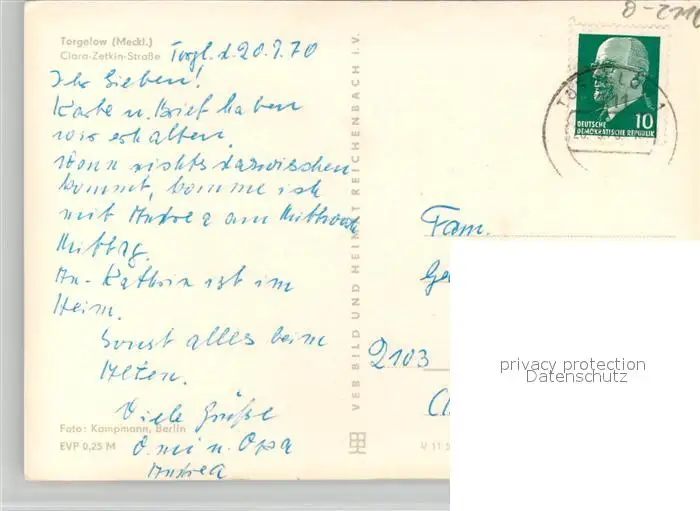 Torgelow (Meckl.)
Clara-Zetkin-Straße
Torgl. d. 20.7.70
Ihr Lieben!
Karte u. Brief haben
wir erhalten.
Wenn nichts dazwischen
kommt, komme ich
mit Andrea am Mittwoch
Mittag.
An-Kathrin ist im
Heim.
Sonst alles beim
Alten.
Viele Grüße
Omi u. Opa
Andrea
Foto: Kampmann, Berlin
EVP 0,25 M
VEB BILD UND HEIMAT REICHENBACH I. V.
V 11 5
10
DEUTSCHE
DEMOKRATISCHE REPUBLIK
Fam.
Ge
2103
privacy protection
Datenschutz